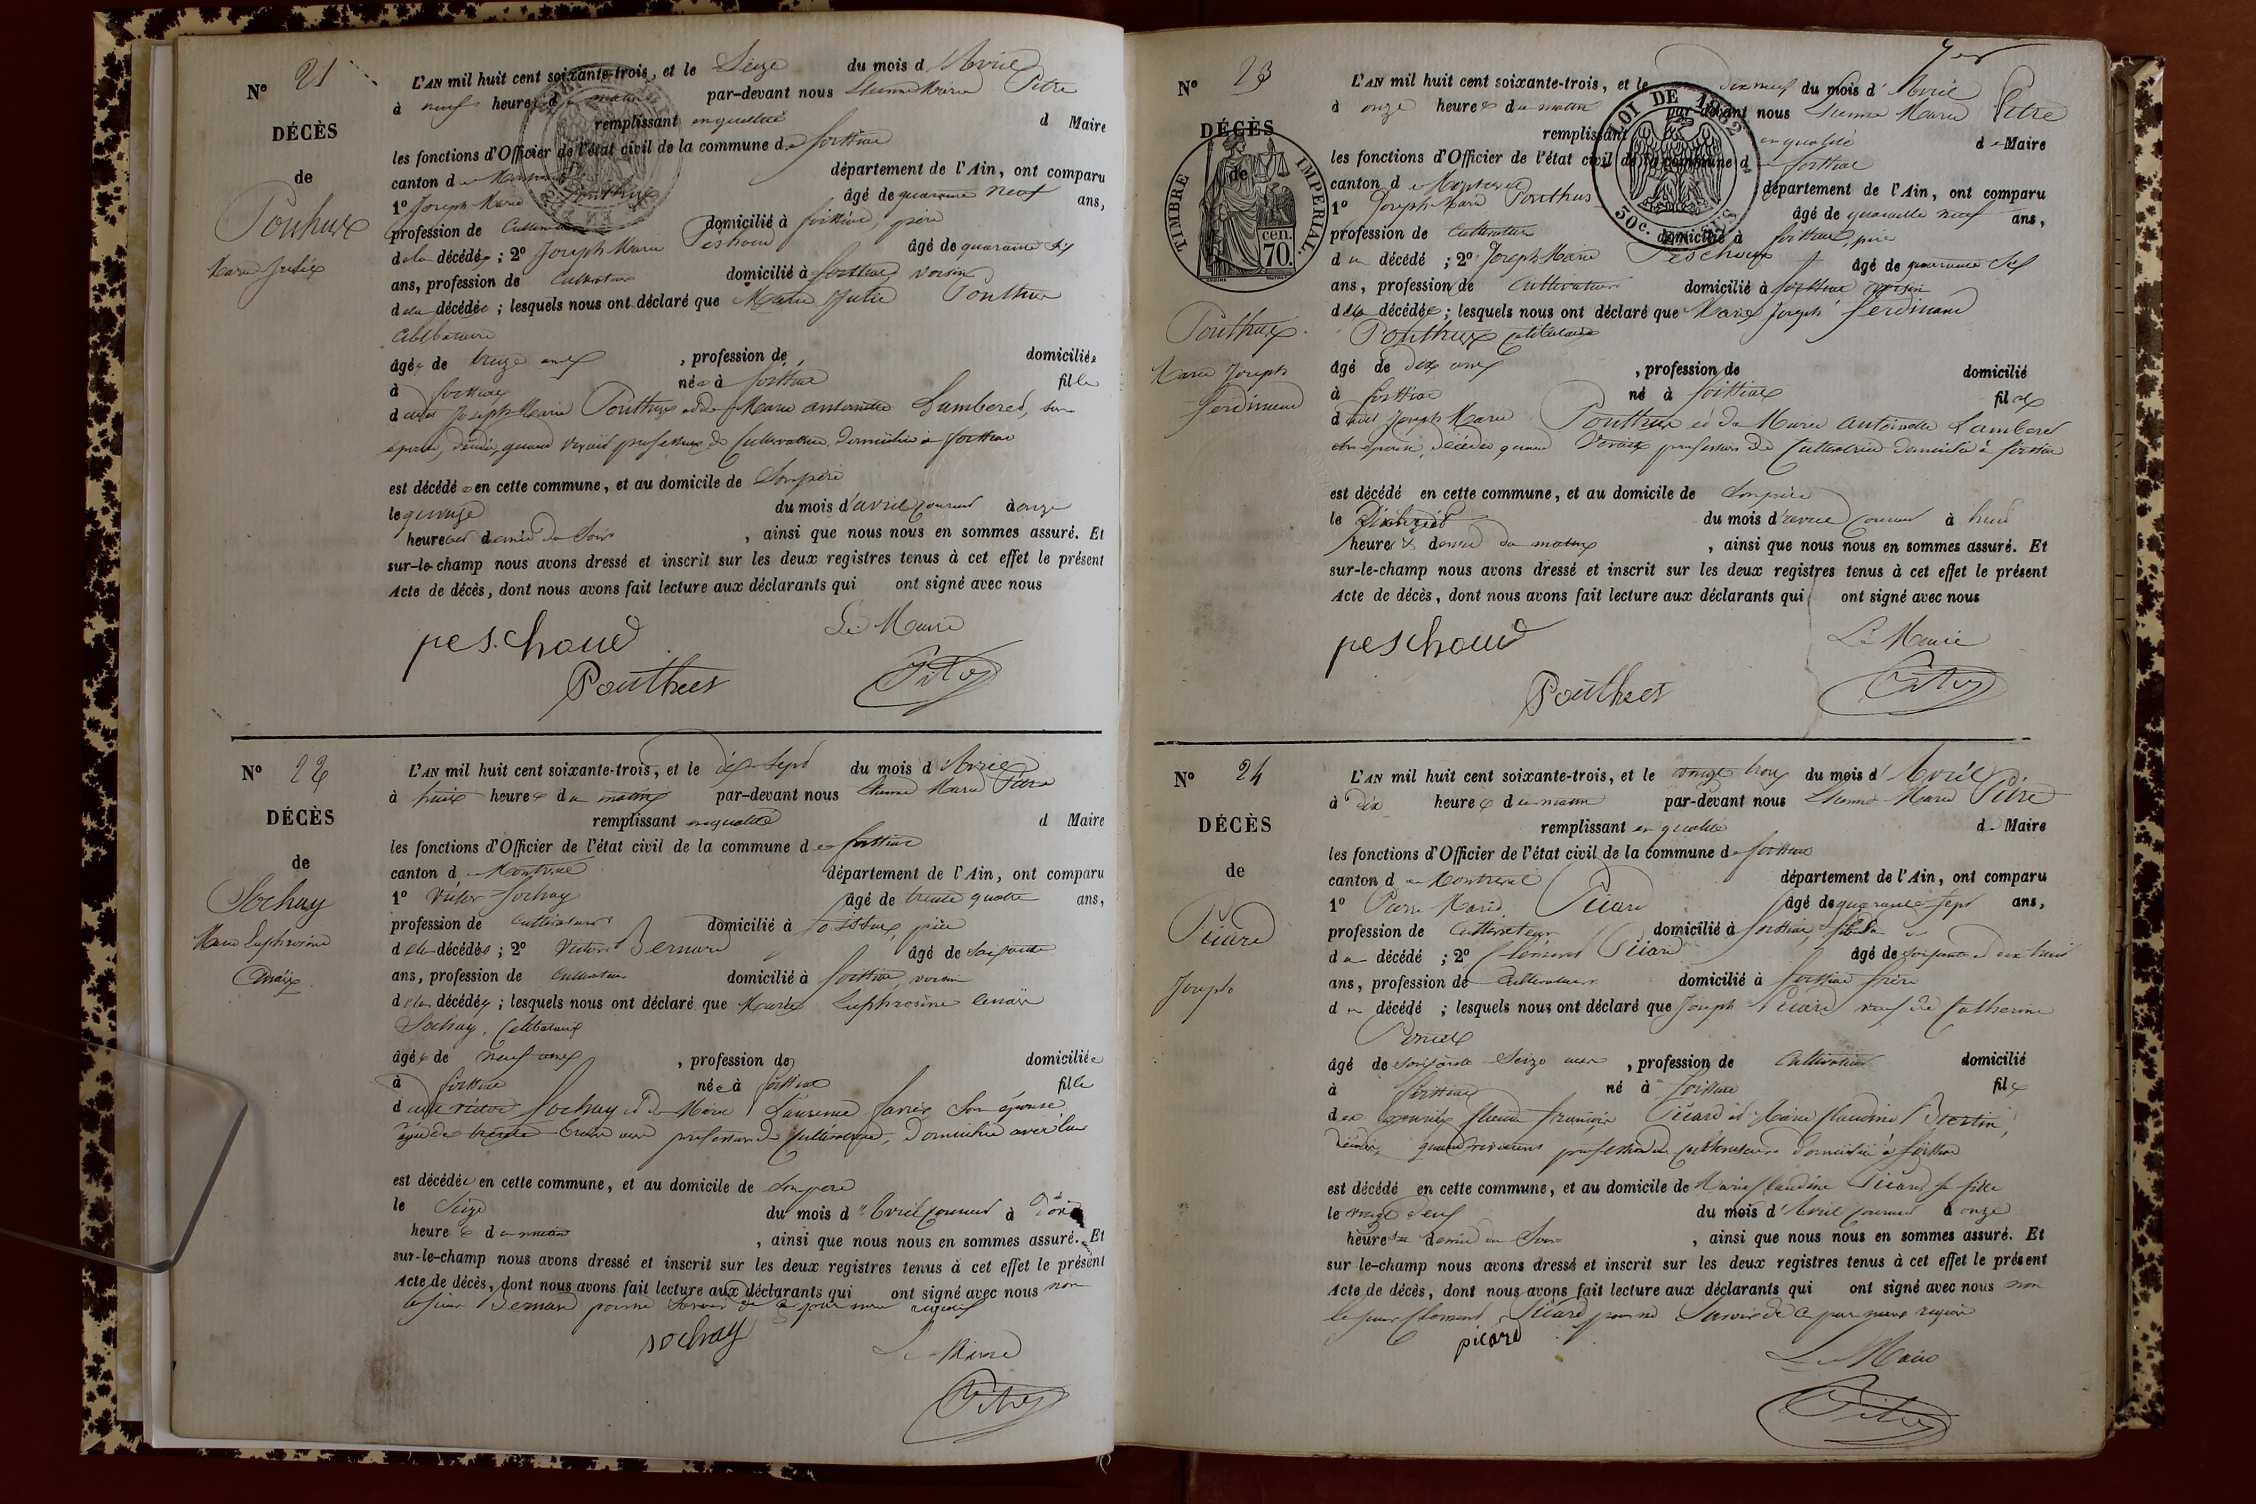 N° 21
DÉCÈS
de
Ponthus
Marie Julie
L'AN mil huit cent soixante-trois, et le Seize du mois d'Avril
à neuf heures du matin par-devant nous Etienne Marie Pitre
remplissant en qualité d Maire
les fonctions d'Officier de l'état civil de la commune de
canton de département de l'Ain, ont comparu
1° Joseph Marie Ponthus âgé de quarante neuf ans,
profession de Cultivateur domicilié à père
de la décédée ; 2° Joseph Marie Peschoud âgé de quarante
ans, profession de Cultivateur domicilié à voisin
de la décédée ; lesquels nous ont déclaré que Marie Julie Ponthus
Célibataire
âgée de treize ans , profession de domiciliée
à née à fille
de Joseph Marie Ponthus et de Marie antoinette Lamberet, son
épouse, décédée, quand vivait profession de Cultivatrice, domiciliée à
est décédée en cette commune, et au domicile de Son père
le quinze du mois d'avril courant à onze
heures et demie du Soir , ainsi que nous nous en sommes assuré. Et
sur-le-champ nous avons dressé et inscrit sur les deux registres tenus à cet effet le présent
Acte de décès, dont nous avons fait lecture aux déclarants qui ont signé avec nous
Le Maire
peschoud
Ponthus
Pitre
N° 22
DÉCÈS
de
Sochay
Marie Euphrosine
L'AN mil huit cent soixante-trois, et le dix Sept du mois d'Avril
à heures du matin par-devant nous Etienne Marie Pitre
remplissant en qualité d Maire
les fonctions d'Officier de l'état civil de la commune de
canton de département de l'Ain, ont comparu
1° Victor Sochay âgé de trente quatre ans,
profession de Cultivateur domicilié à père
de la décédée ; 2° Victor Bernard âgé de Soixante
ans, profession de Cultivateur domicilié à voisin
de la décédée ; lesquels nous ont déclaré que Marie Euphrosine
Sochay, Célibataire
âgée de neuf ans , profession de domiciliée
à née à fille
de Victor Sochay et de Marie Laurence Son épouse
âgée de trente ans profession de Cultivatrice, domiciliée avec lui
est décédée en cette commune, et au domicile de Son père
le Seize du mois d'Avril courant à
heures du matin , ainsi que nous nous en sommes assuré. Et
sur-le-champ nous avons dressé et inscrit sur les deux registres tenus à cet effet le présent
Acte de décès, dont nous avons fait lecture aux déclarants qui ont signé avec nous non
le Sieur Bernard pour ne Savoir de ce par nous requis
sochay
Le Maire
Pitre
N° 23
DÉCÈS
de
TIMBRE IMPERIAL
70. cen.
LOI DE 1862
30c.
Ponthus
Marie Joseph
ferdinand
L'AN mil huit cent soixante-trois, et le dix neuf du mois d'Avril
à onze heures du matin par-devant nous Etienne Marie Pitre
remplissant en qualité de Maire
les fonctions d'Officier de l'état civil de la commune de
canton de département de l'Ain, ont comparu
1° Joseph Marie Ponthus âgé de quarante neuf ans,
profession de Cultivateur domicilié à père
du décédé ; 2° Joseph Marie Peschoud âgé de quarante
ans, profession de Cultivateur domicilié à voisin
d décédé ; lesquels nous ont déclaré que Marie Joseph ferdinand
Ponthus célibataire
âgé de dix ans , profession de domicilié
à né à fils
de Joseph Marie Ponthus et de Marie antoinette Lamberet
son épouse, décédée quand vivait profession de Cultivatrice domiciliée à
est décédé en cette commune, et au domicile de Son père
le du mois d'avril courant à huit
heures et demie du matin , ainsi que nous nous en sommes assuré. Et
sur-le-champ nous avons dressé et inscrit sur les deux registres tenus à cet effet le présent
Acte de décès, dont nous avons fait lecture aux déclarants qui ont signé avec nous
Le Maire
peschoud
Ponthus
Pitre
N° 24
DÉCÈS
de
Picard
Joseph
L'AN mil huit cent soixante-trois, et le vingt trois du mois d'Avril
à Dix heures du matin par-devant nous Etienne Marie Pitre
remplissant en qualité de Maire
les fonctions d'Officier de l'état civil de la commune de
canton de département de l'Ain, ont comparu
1° Pierre Marie Picard âgé de quarante Sept ans,
profession de Cultivateur domicilié à
du décédé ; 2° Clément Picard âgé de soixante
ans, profession de Cultivateur domicilié à frère
du décédé ; lesquels nous ont déclaré que Joseph Picard veuf de Catherine
âgé de soixante Seize ans , profession de Cultivateur domicilié
à né à fils
de Claude françois Picard et Marie Claudine
décédés, quand vivaient profession de Cultivateurs domiciliés à
est décédé en cette commune, et au domicile de Marie Claudine Picard, sa fille
le vingt deux du mois d'Avril courant à onze
heures et demie du Soir , ainsi que nous nous en sommes assuré. Et
sur le-champ nous avons dressé et inscrit sur les deux registres tenus à cet effet le présent
Acte de décès, dont nous avons fait lecture aux déclarants qui ont signé avec nous non
le sieur Clément Picard pour ne Savoir de ce par nous requis
picard
Le Maire
Pitre